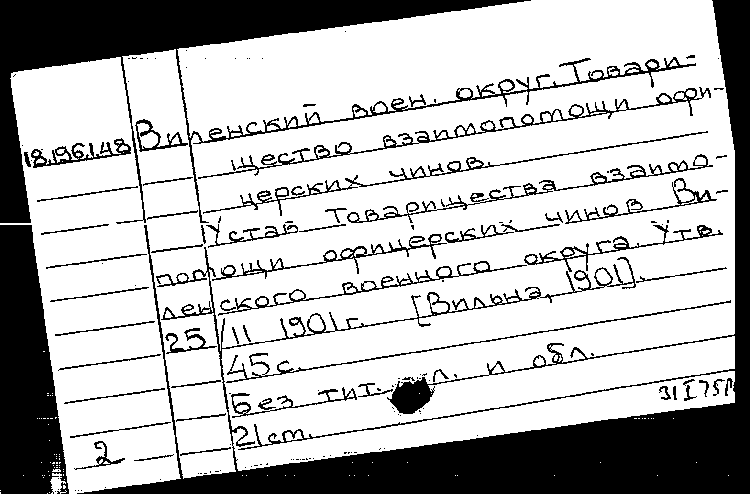 18.196.1.48 Виленский воен. округ. Товари-
щество взаимопомощи офи-
церских чинов.
Устав Товарищества взаимо-
помощи офицерских чинов Ви-
ленского военного округа. Утв.
25/II 1901 г. [Вильна, 1901].
45 с.
Без тит. л. и обл.
21 см.
31 I 75
2